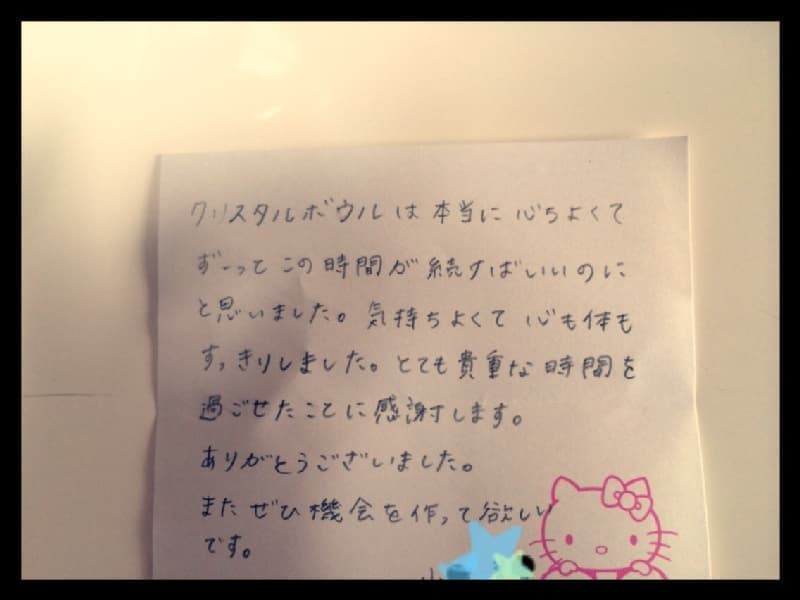 クリスタルボウルは本当に心ちよくて
ずーってこの時間が続けばいいのに
と思いました。気持ちよくて心も体も
すっきりしました。とても貴重な時間を
過ごせたことに感謝します。
ありがとうございました。
またぜひ機会を作って欲しい
です。